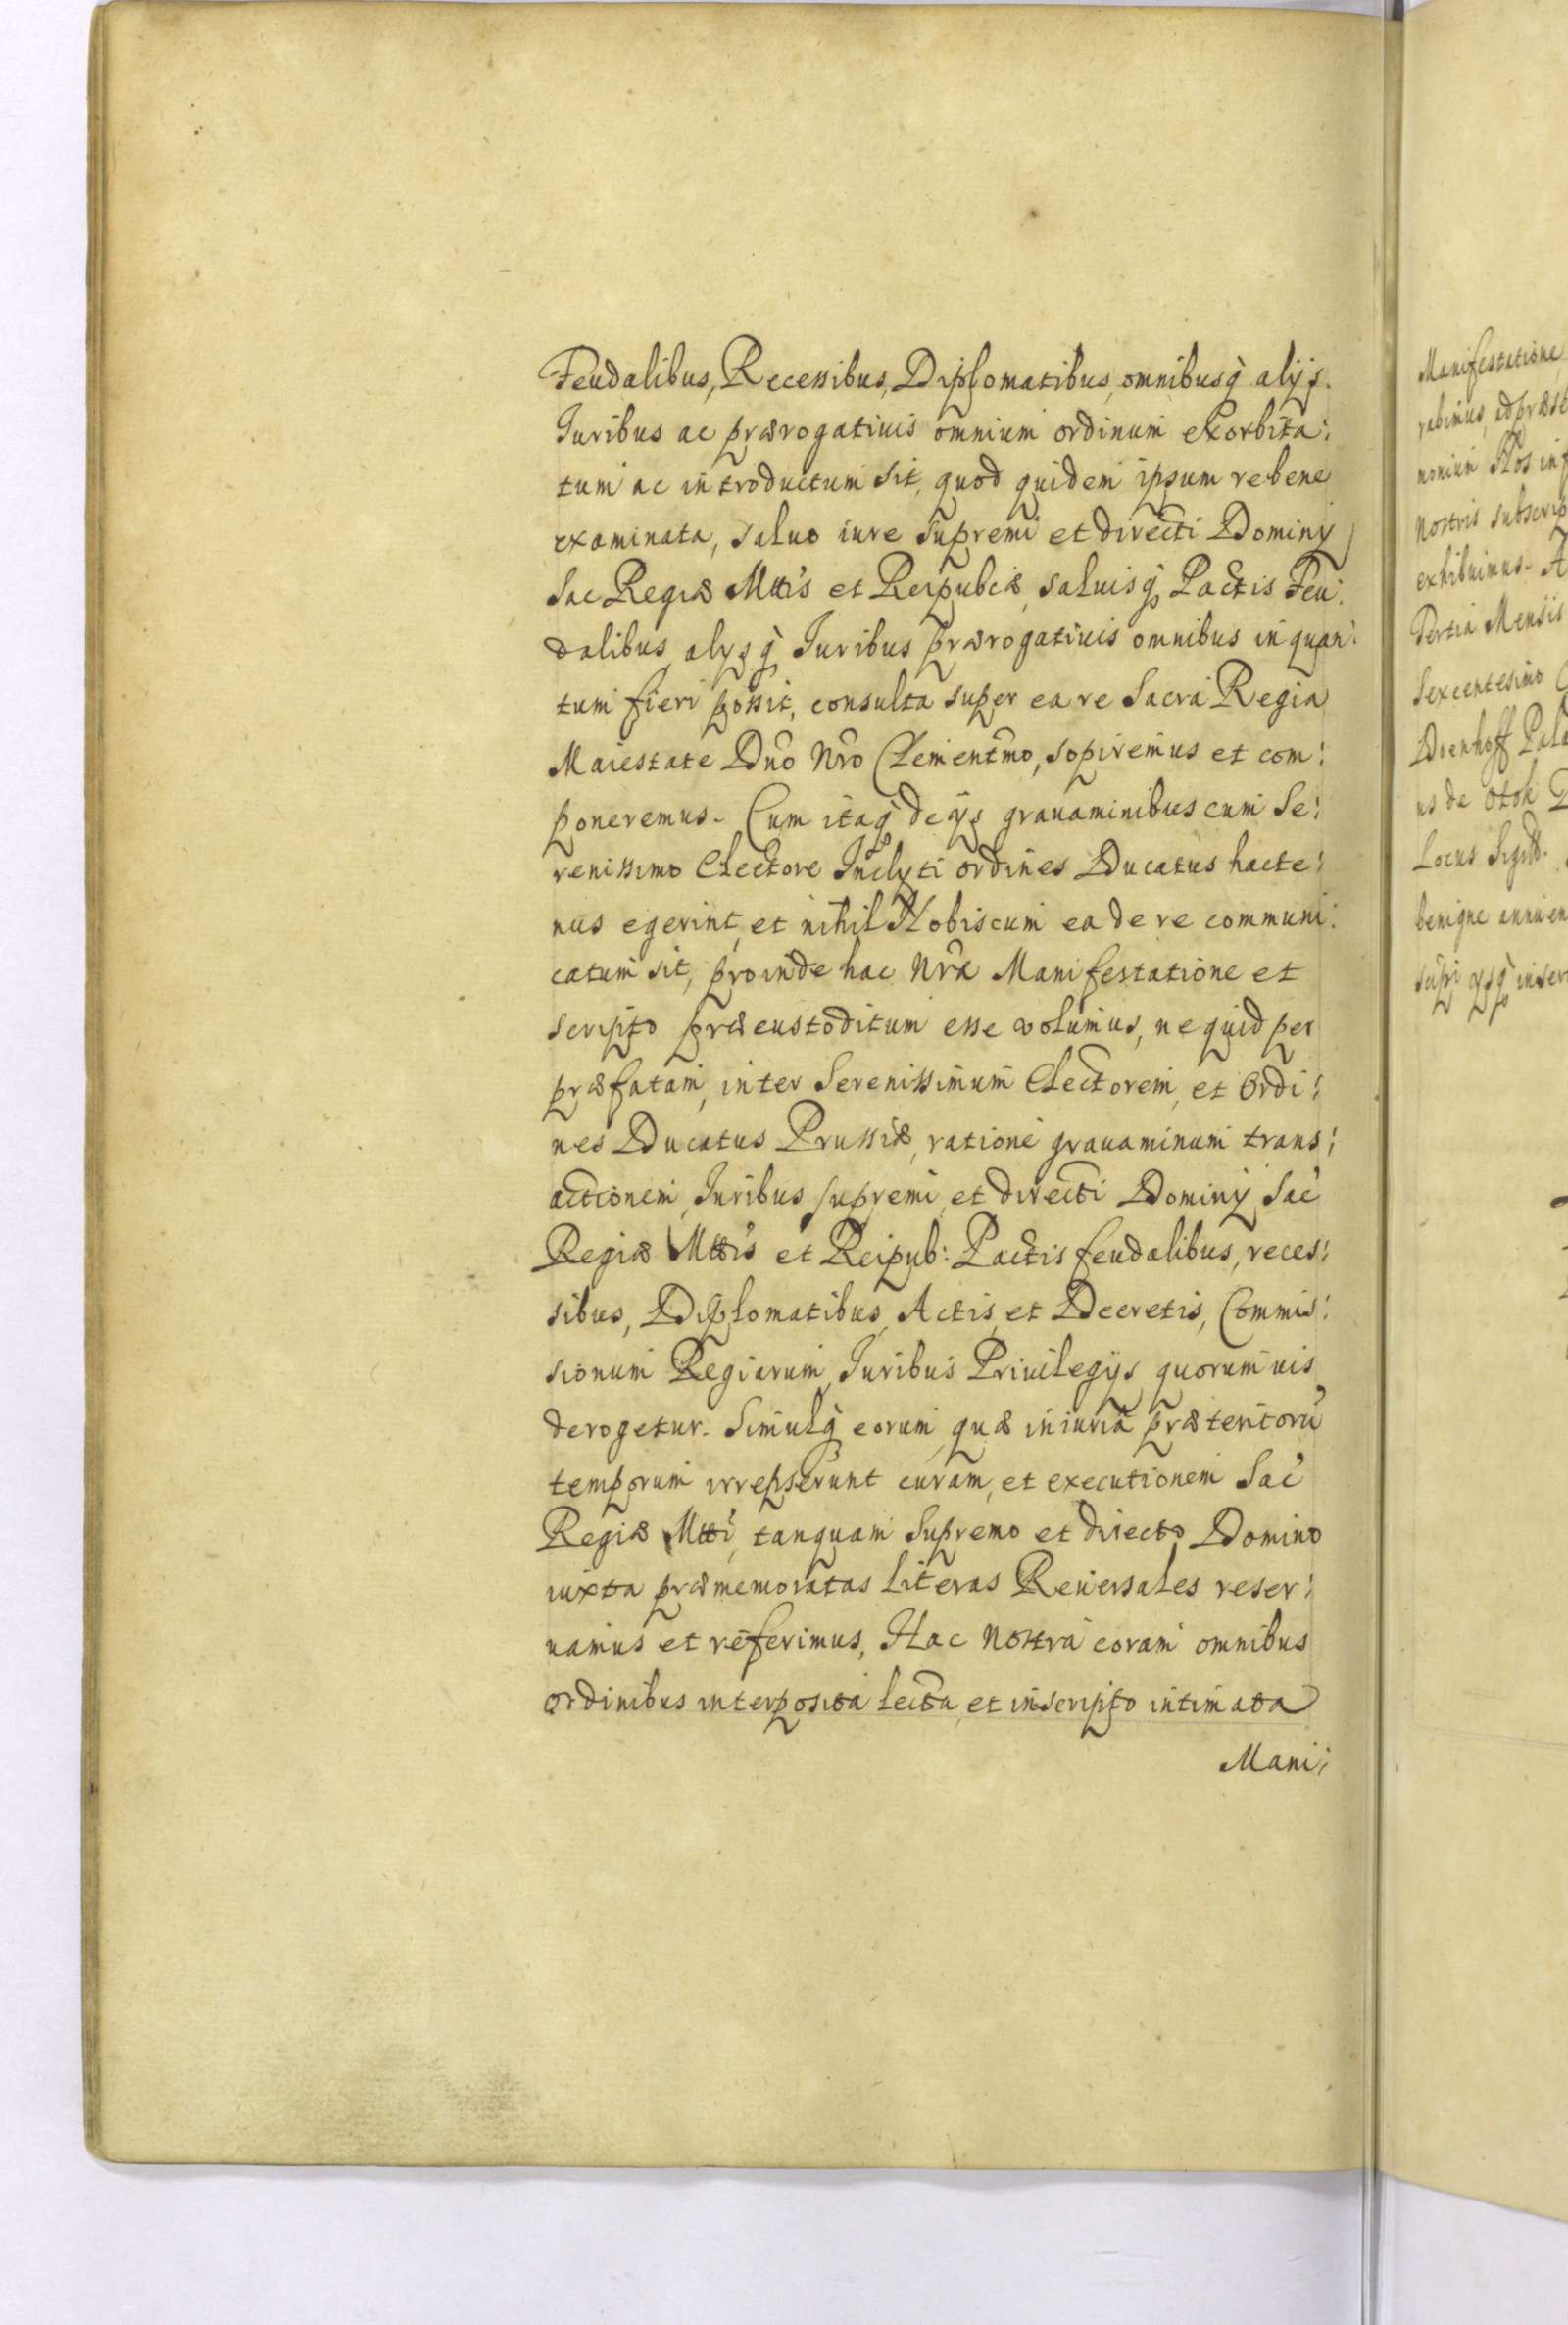 Feudalibus, Recessibus, Diplomatibus, omnibusq̀ alijs.
Iuribus ac prærogatiuis omnium ordinum exorbita:
tum ac introductum sit, quod quidem ipsum re bene
examinata, saluo iure supremi et directi Dominij
Sac Regiæ Mttis et Reipubcæ, saluisq̀ Pactis Feu:
dalibus, alijsq̀ Iuribus prærogatiuis omnibus in quan:
tum fieri possit, consulta super ea re Sacra Regia
Maiestate Dño Nrõ Clementmo, sopiremus et com:
poneremus. Cum itaq̀ de ijs grauaminibus cum Se:
renissimo Electore Inclyti ordines Ducatus hacte:
nus egerint, et nihil Nobiscum ea de re communi:
catum sit, proinde hac Nrã Manifestatione et
scripto præcustoditum esse volumus, ne quid per
præfatam, inter Serenissimum Electorem, et Ordi:
nes Ducatus Prussiæ, ratione grauaminum trans:
actionem, Iuribus supremi et directi Dominij Sac
Regiæ Mttis et Reipub: Pactis feudalibus, reces:
sibus, Diplomatibus, Actis, et Decretis, Commis:
sionum Regiarum, Iuribus Priuilegijs quorumuis
derogetur. Simulq̀ eorum, quæ iniuria præteritorũ
temporum irrepserunt curam, et executionem Sac
Regiæ Mtti, tanquam Supremo et directo Domino
iuxta præmemoratas literas Reuersales reser:
uamus et referimus, Hac Nostra coram omnibus
ordinibus interposita lecta, et inscripto intimata
Mani:
Manifestatione
nostris subscrip
exhibuimus. A
Tertia Mensis
Sexcentesimo
Doenhoff Pala
us de Otok
Locus Sigill.
benigne annuen